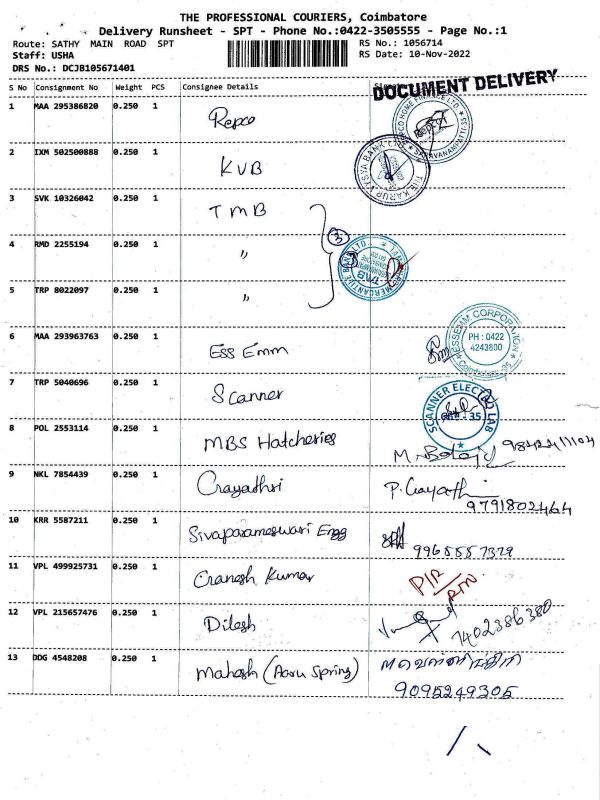 THE PROFESSIONAL COURIERS, Coimbatore
Delivery Runsheet - SPT - Phone No.:0422-3505555 - Page No.:1
Route: SATHY MAIN ROAD SPT
RS No.: 1056714
Staff: USHA
RS Date: 10-Nov-2022
DRS No.: DCJB105671401
DOCUMENT DELIVERY
S No Consignment No Weight PCS Consignee Details
1 MAA 295386820 0.250 1 Repco
2 IXM 502500888 0.250 1 KVB
THE KARUR VYSYA BANK LTD
3 SVK 10326042 0.250 1 TMB
3
4 RMD 2255194 0.250 1 "
5 TRP 8022097 0.250 1 "
6 MAA 293963763 0.250 1 ESS Emm
ESSEMM CORPORATION
PH : 0422
4243800
Coimbatore-35
7 TRP 5040696 0.250 1 Scanner
SCANNER ELECTRO LAB
8 POL 2553114 0.250 1 MBS Hatcheries
9 NKL 7854439 0.250 1 Gayathri P. Gayathri
9791802464
10 KRR 5587211 0.250 1 Sivaparameswari Engg
9965557379
11 VPL 499925731 0.250 1 Ganesh Kumar
12 VPL 215657476 0.250 1 Dilesh
7402386380
13 DDG 4548208 0.250 1 Mahesh (Aaru Spring)
9095249305